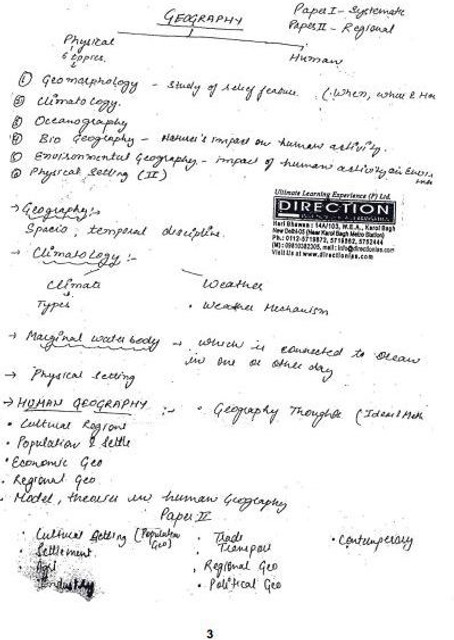 GEOGRAPHY
Paper I - Systematic
Paper II - Regional
Physical
6 topics
Human
① Geomorphology - Study of relief feature (When, what & How
② Climatology.
③ Oceanography
④ Bio Geography - Nature's impact on human activity.
⑤ Environmental Geography - impact of human activity on Environ
⑥ Physical Setting (II)
Ultimate Learning Experience (P) Ltd.
DIRECTION
Hari Bhawan : 14A/103, W.E.A., Karol Bagh
New Delhi-05 (Near Karol Bagh Metro Station)
Ph.: 0112-5719872, 5719362, 5752444
(M): 09810382305, mail: info@directionias.com
Visit Us at www.directionias.com
→ Geography :-
Spacio, temporal discipline.
→ Climatology :-
Climate
Types
Weather
• Weather Mechanism
→ Marginal water body → which is connected to Ocean
in one or other day
→ Physical setting
→ HUMAN GEOGRAPHY :- • Geography Thoughts (Idea & Meth
• Cultural Regions
• Population & Settle
• Economic Geo
• Regional Geo
• Model, theories in human Geography
Paper II
• Cultural Setting (Population Geo)
• Settlement
• Agri
• Industry
• Trade
• Transport
• Regional Geo
• Political Geo
• Contemporary
3